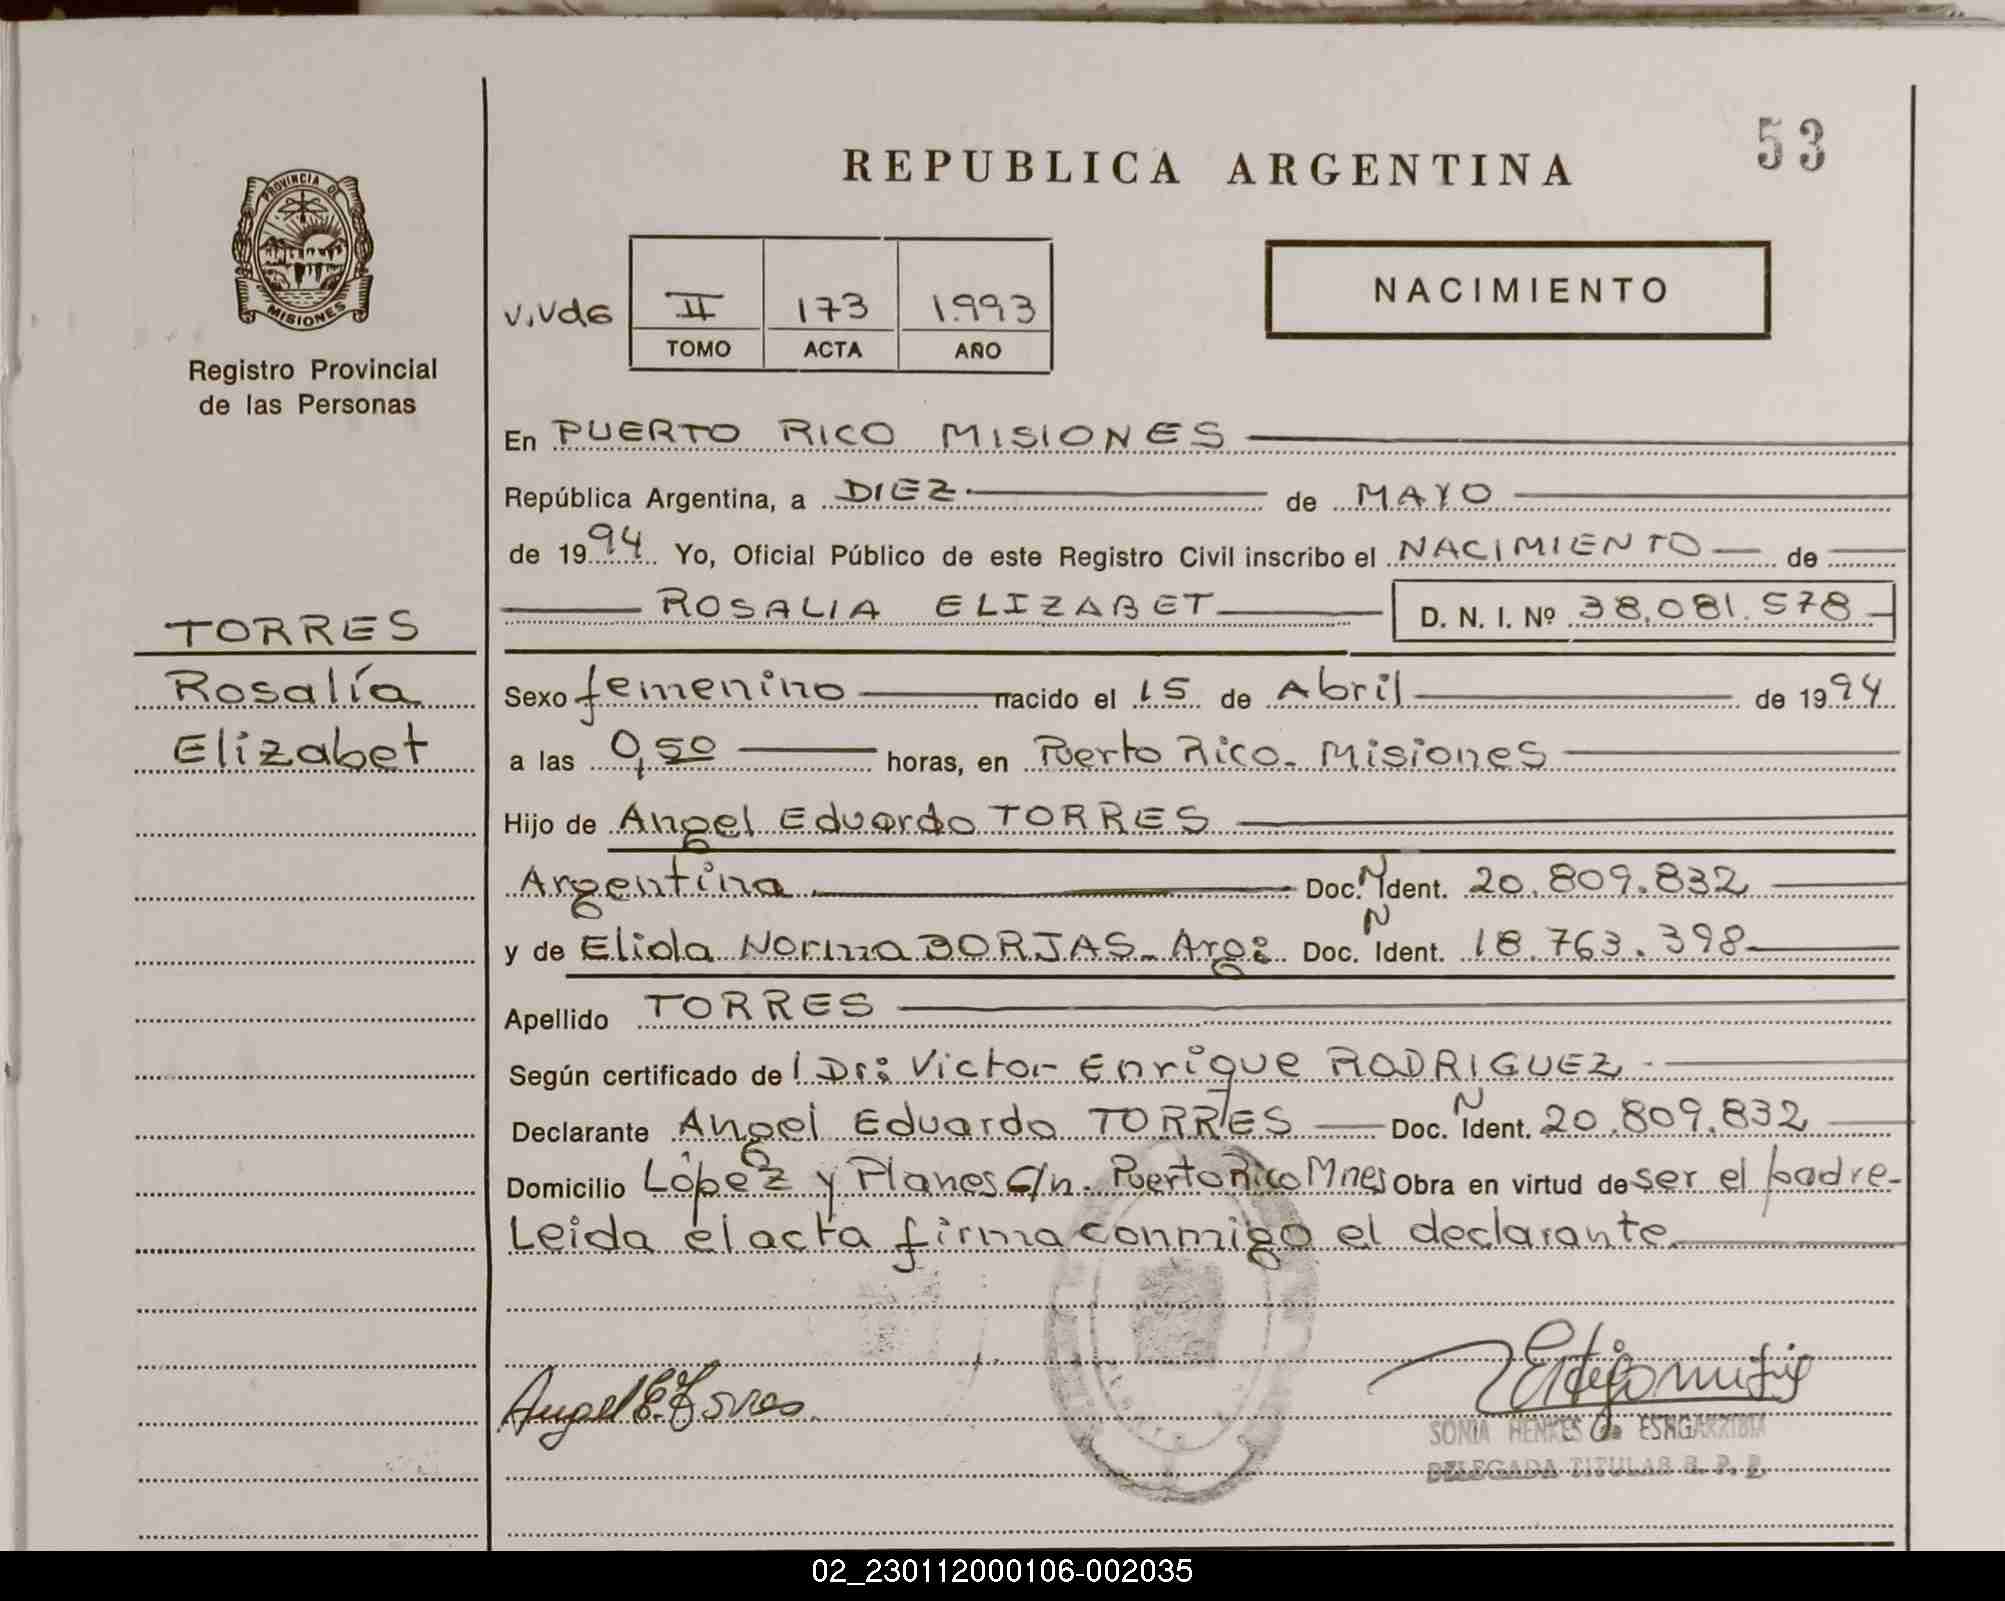 53
REPUBLICA ARGENTINA
PROVINCIA DE
MISIONES
Registro Provincial
de las Personas
V.Vda II 173 1.993
TOMO ACTA AÑO
NACIMIENTO
En PUERTO RICO MISIONES
República Argentina, a DIEZ de MAYO
de 1994 Yo, Oficial Público de este Registro Civil inscribo el NACIMIENTO de
ROSALIA ELIZABET D. N. I. Nº 38.081.578
TORRES
Rosalía
Elizabet
Sexo femenino nacido el 15 de Abril de 1994
a las 0,50 horas, en Puerto Rico. Misiones
Hijo de Angel Eduardo TORRES
Argentina Doc. N Ident. 20.809.832
y de Elida Norma BORJAS Arg: Doc. N Ident. 18.763.398
Apellido TORRES
Según certificado de l Dr: Victor Enrique RODRIGUEZ
Declarante Angel Eduardo TORRES Doc. N Ident. 20.809.832
Domicilio López y Planes Puerto Rico Mnes Obra en virtud de ser el padre-
Leida el acta firma conmigo el declarante
Angel E. Torres
SONIA HENKES de
DELEGADA TITULAR R. P. P.
02_230112000106-002035